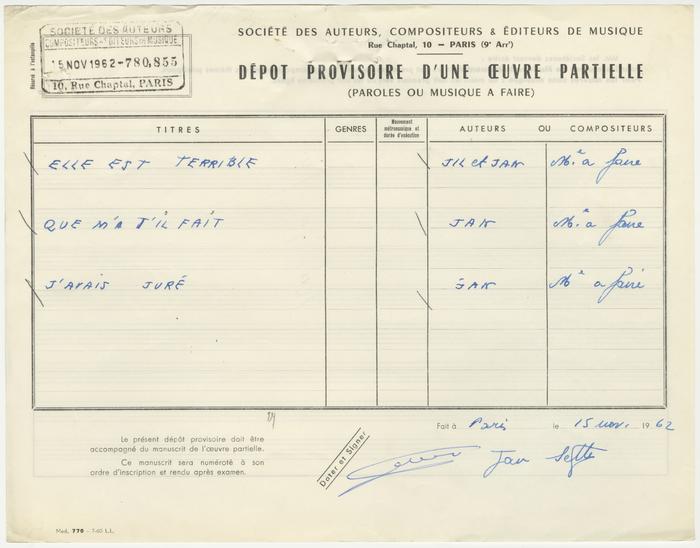 SOCIÉTÉ DES AUTEURS, COMPOSITEURS & ÉDITEURS DE MUSIQUE
Rue Chaptal, 10 — PARIS (9e Arrt)
DÉPOT PROVISOIRE D'UNE ŒUVRE PARTIELLE
(PAROLES OU MUSIQUE A FAIRE)
Réservé à l'estampille
SOCIÉTÉ DES AUTEURS
COMPOSITEURS & EDITEURS DE MUSIQUE
15 NOV 1962-780,855
10, Rue Chaptal, PARIS
TITRES GENRES Mouvement métronomique et durée d'exécution AUTEURS OU COMPOSITEURS
ELLE EST TERRIBLE JIL et JAN Me. a faire
QUE M'A T'IL FAIT JAN Me. a faire
J'AVAIS JURÉ JAN Me a faire
Fait à Paris le 15 nov. 1962
Le présent dépôt provisoire doit être
accompagné du manuscrit de l'œuvre partielle.
Ce manuscrit sera numéroté à son
ordre d'inscription et rendu après examen.
Dater et Signer
Jan
Mod. 770 - 7-60 L.L.